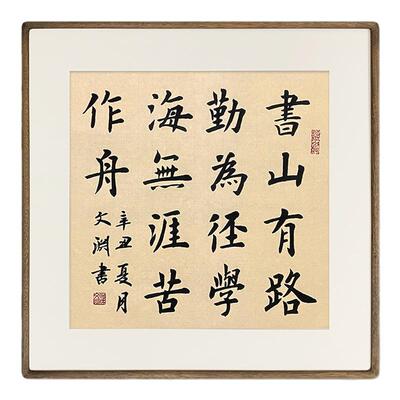 書山有路
勤為徑學
海無涯苦
作舟
辛丑夏月
文淵書